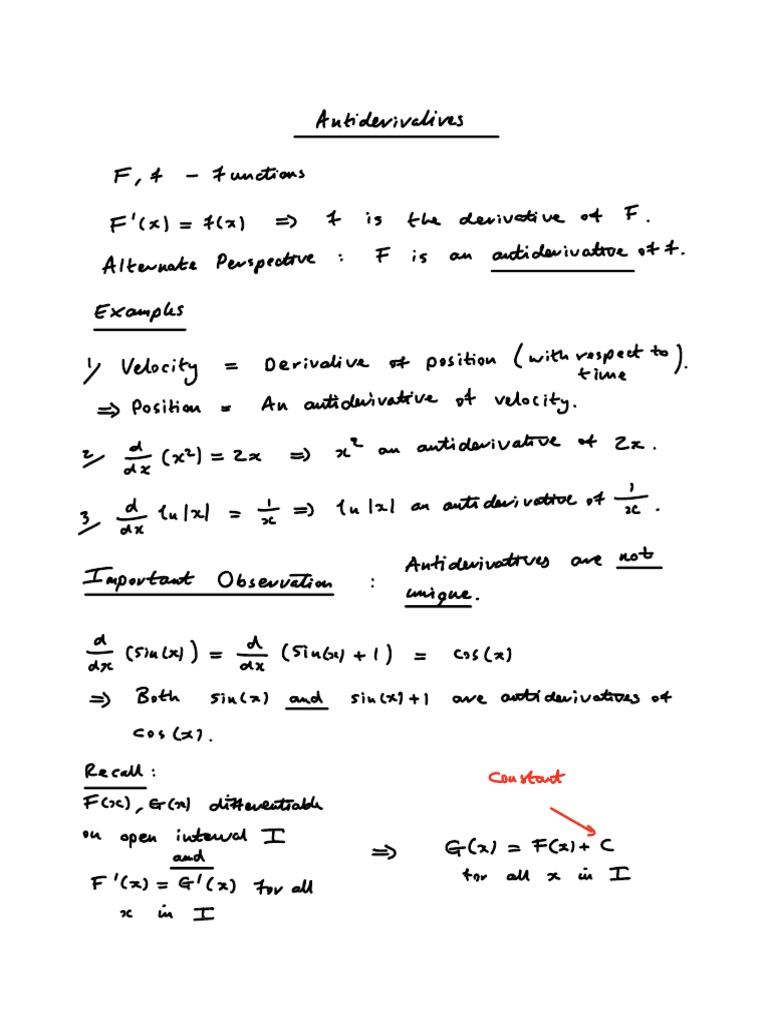 Antiderivatives
F, f - Functions
F'(x) = f(x) ⇒ f is the derivative of F.
Alternate Perspective : F is an antiderivative of f.
Examples
1/ Velocity = Derivative of position (with respect to time).
⇒ Position = An antiderivative of velocity.
2/ d/dx (x²) = 2x ⇒ x² an antiderivative of 2x.
3/ d/dx ln|x| = 1/x ⇒ ln|x| an antiderivative of 1/x.
Important Observation : Antiderivatives are not unique.
d/dx (sin(x)) = d/dx (sin(x) + 1) = cos(x)
⇒ Both sin(x) and sin(x)+1 are antiderivatives of
cos(x).
Recall :
F(x), G(x) differentiable
on open interval I
and
F'(x) = G'(x) for all
x in I
⇒
Constant
G(x) = F(x) + C
for all x in I